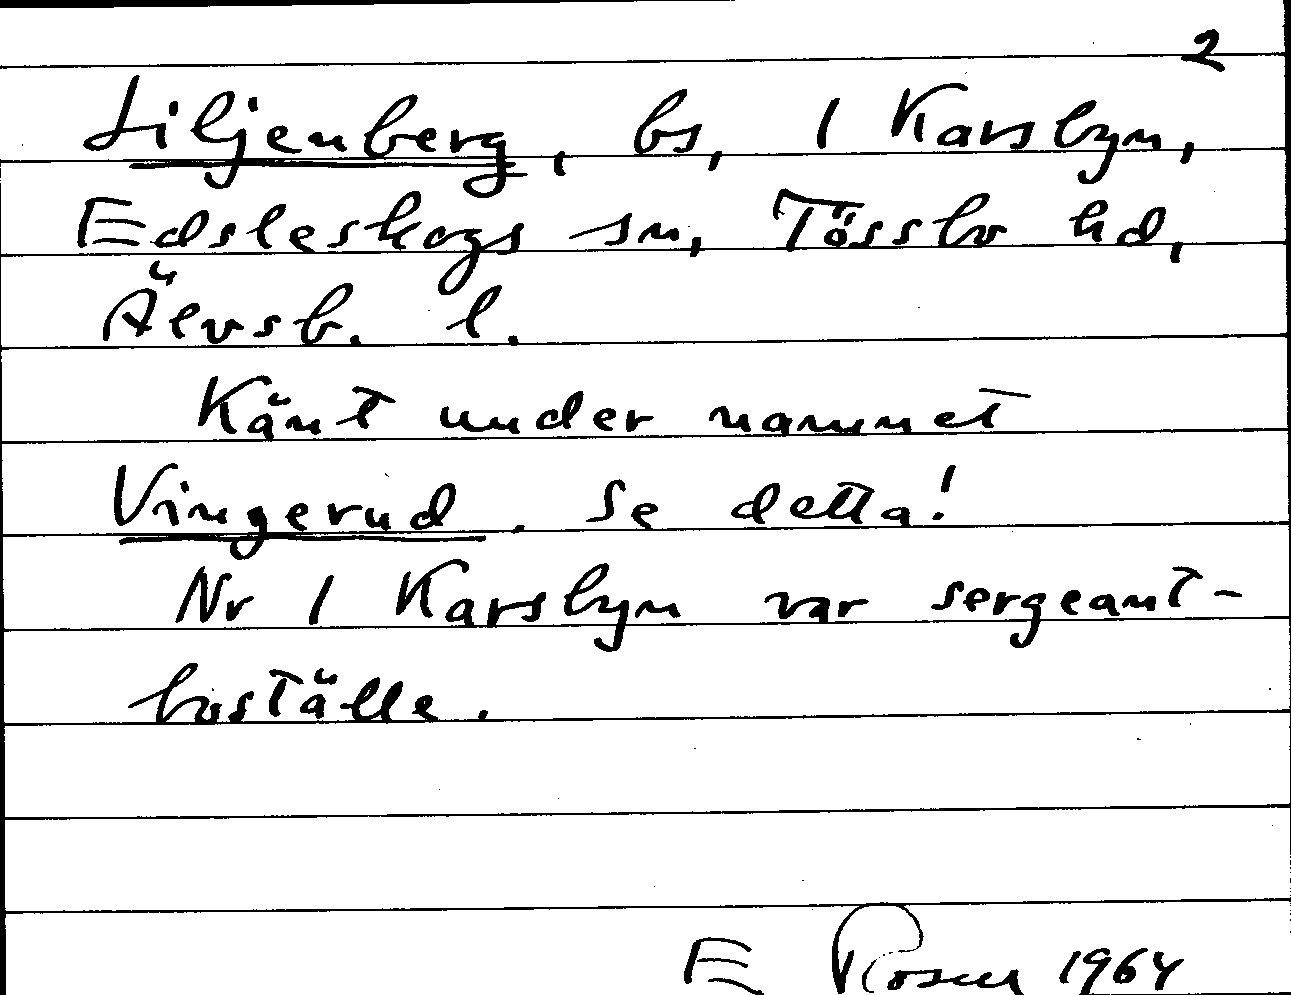 2
Liljenberg, bs, 1 Karsbyn,
Edsleskogs sn, Tössbo hd,
Älvsb. l.
Känt under namnet
Vingerud. Se detta!
Nr 1 Karsbyn var sergeant-
boställe.
E Rosell 1964